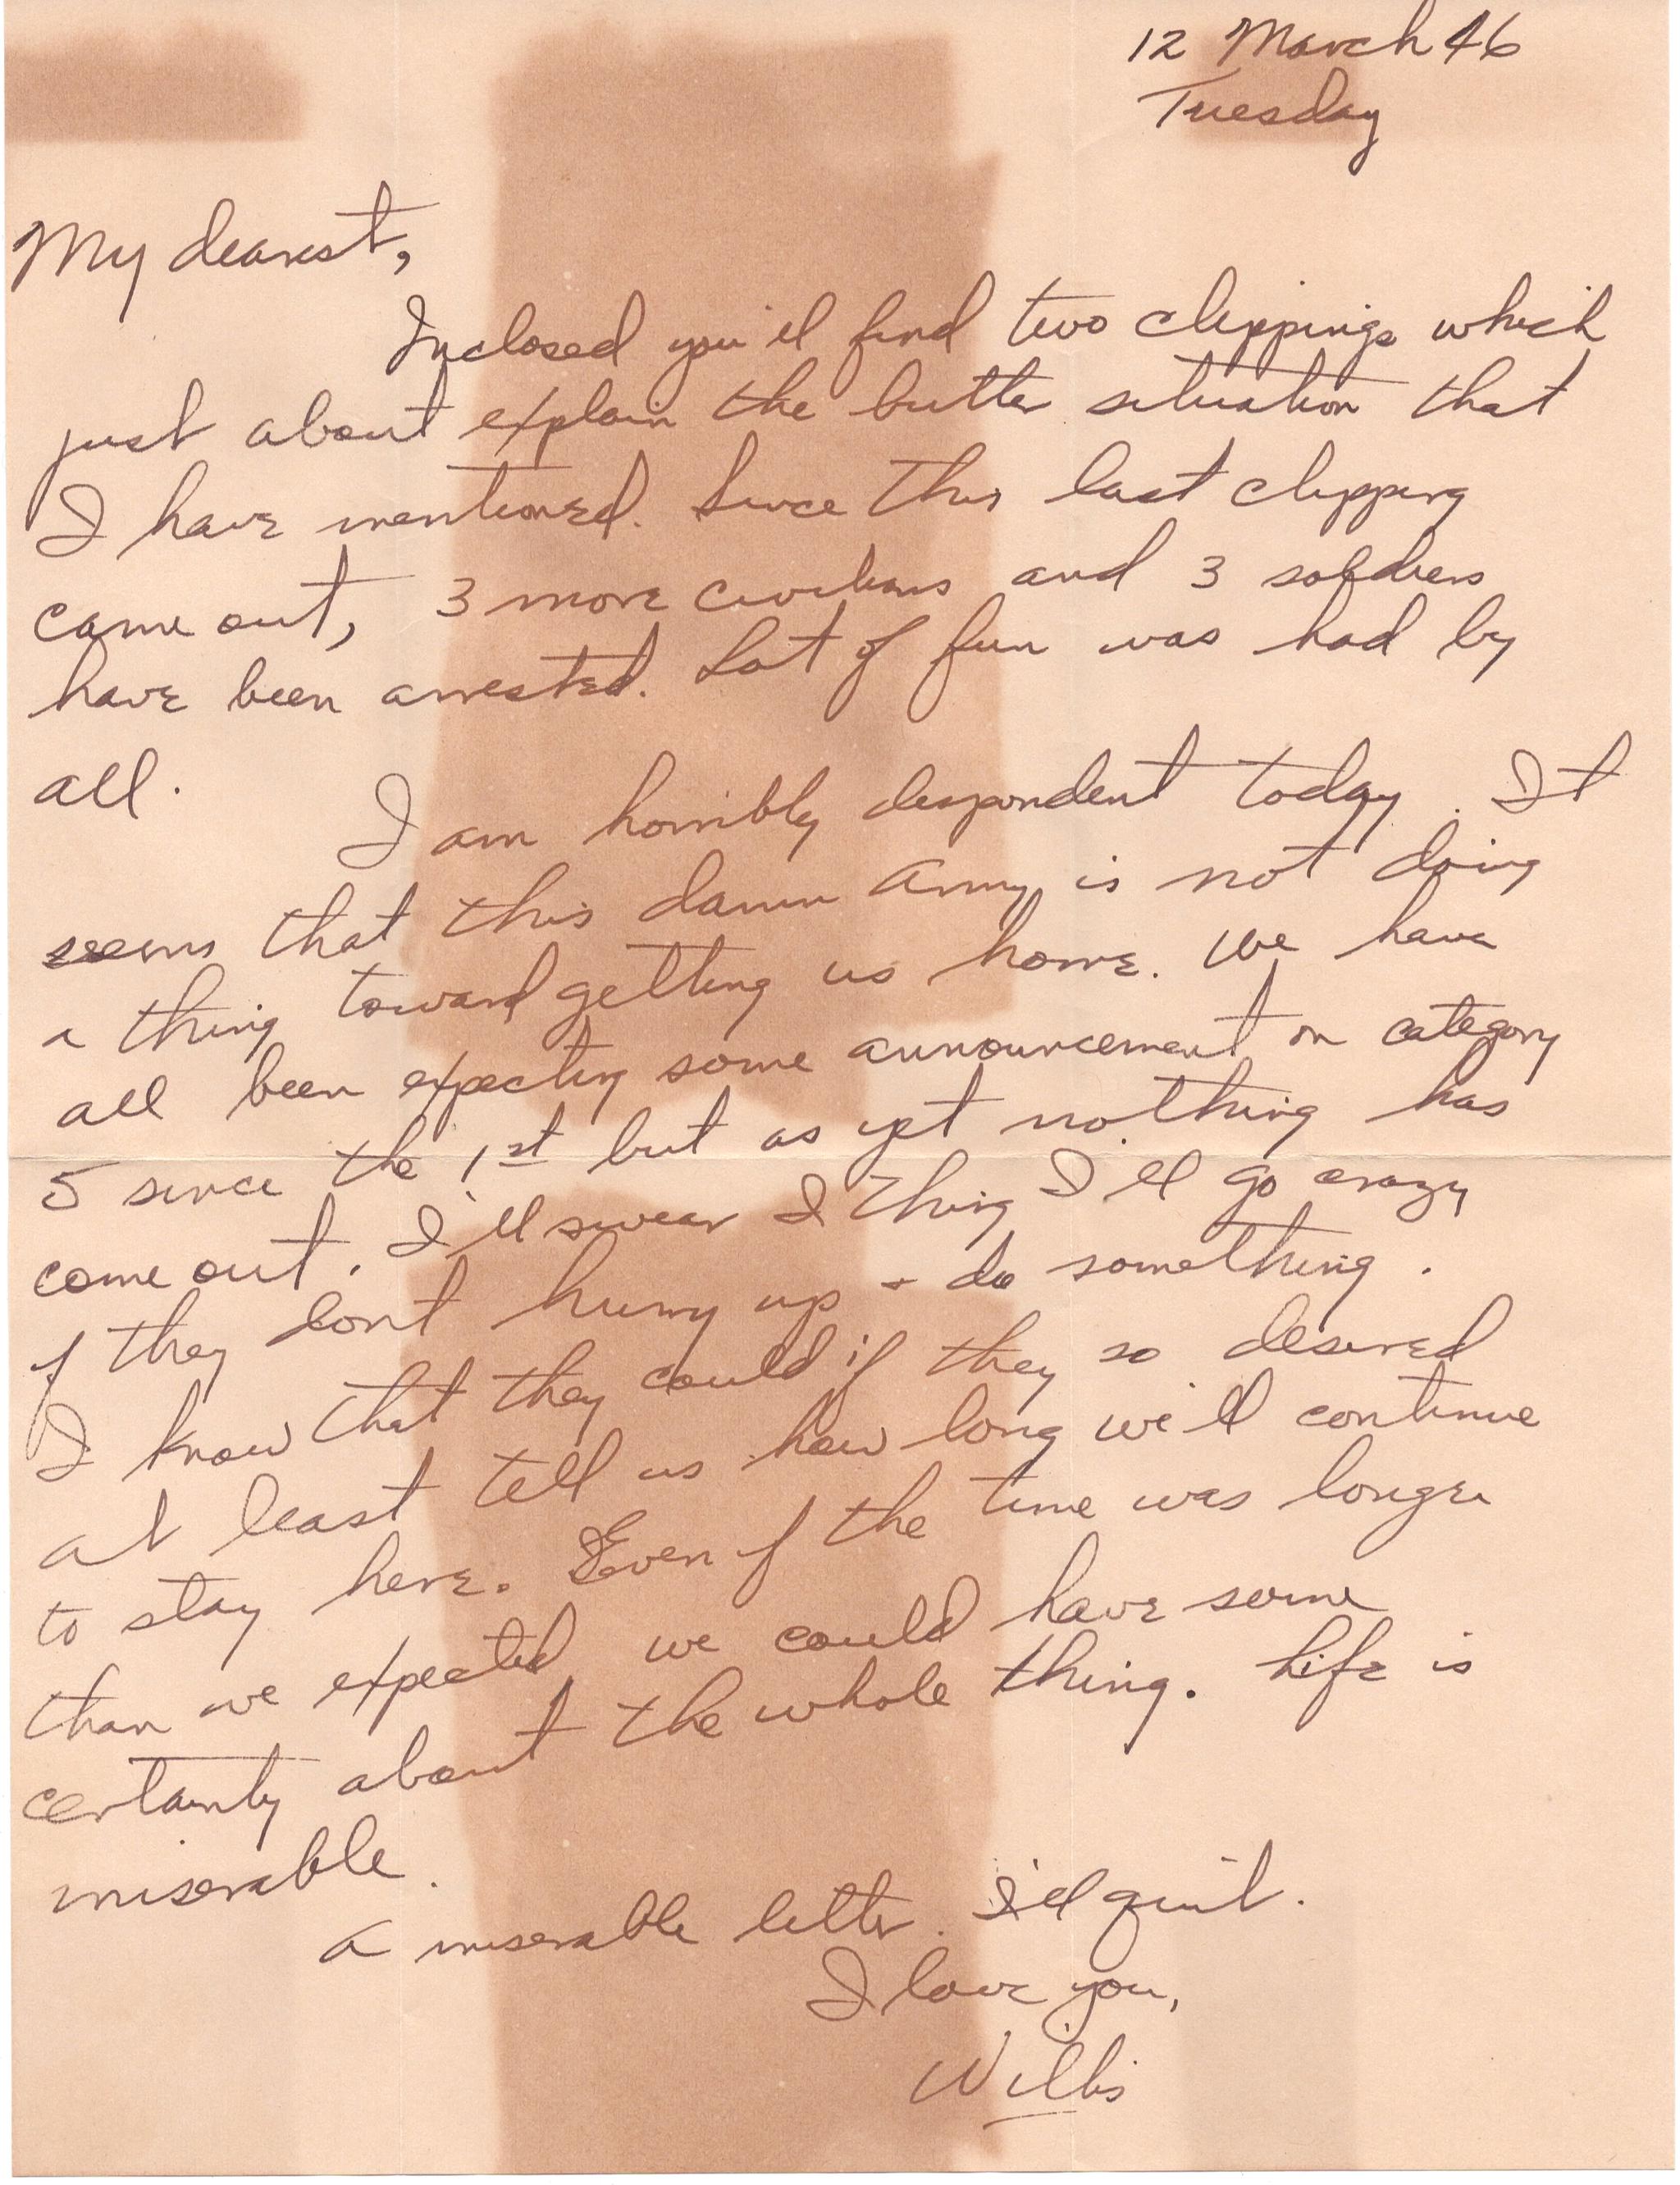 12 March 46
Tuesday
My dearest,
Inclosed you'll find two clippings which
just about explain the butter situation that
I have mentioned. Since this last clipping
came out, 3 more civilians and 3 soldiers
have been arrested. Lot of fun was had by
all.
I am horribly despondent today. It
seems that this damn Army is not doing
a thing toward getting us home. We have
all been expecting some announcement on category
5 since the 1st but as yet nothing has
come out. I'll swear I thing I'll go crazy
if they don't hurry up + do something.
I know that they could if they so desired
at least tell us how long we'll continue
to stay here. Even if the time was longer
than we expected we could have some
certainty about the whole thing. Life is
miserable.
A miserable letter. I'll quit.
I love you,
Willis